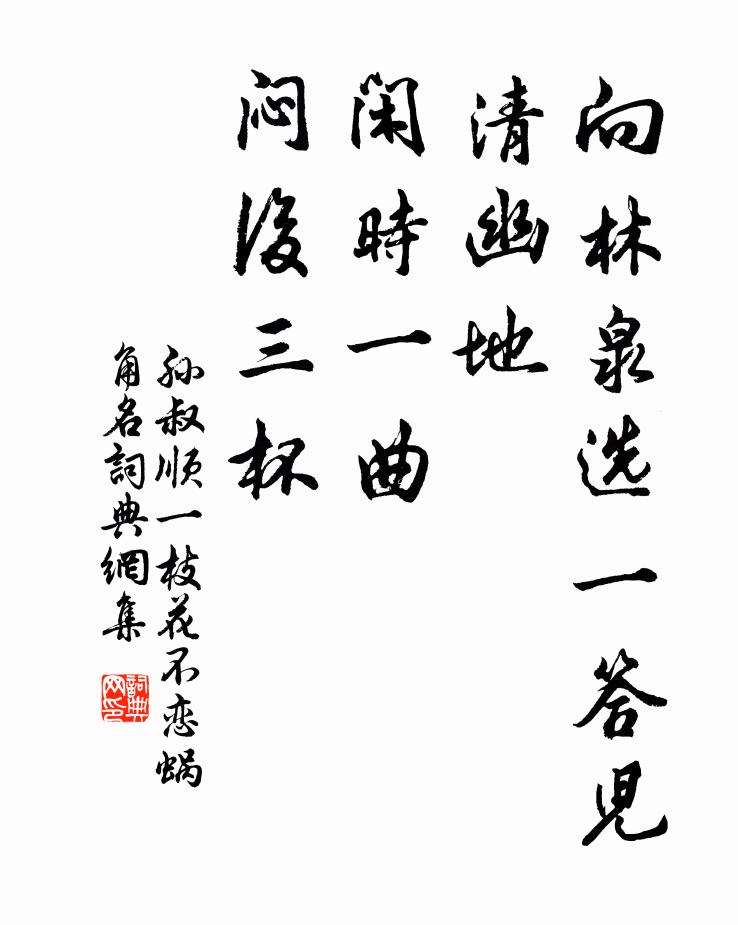 向林泉选一答兒
清幽地
閑時一曲
悶後三杯
孙叔顺一枝花不恋蜗
角名詞典網集
詞典
网印